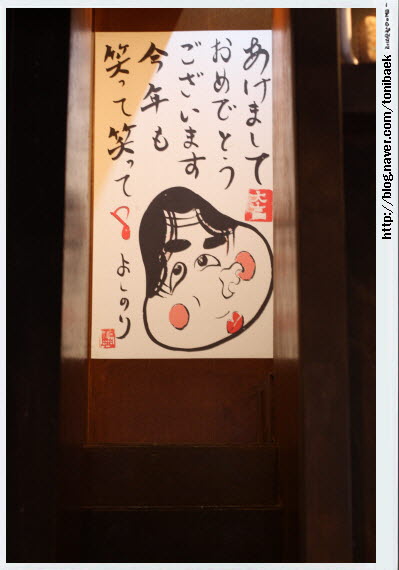 あけまして
おめでとう
ございます
今年も
笑って笑って
よしのり
http://blog.naver.com/tonibaek